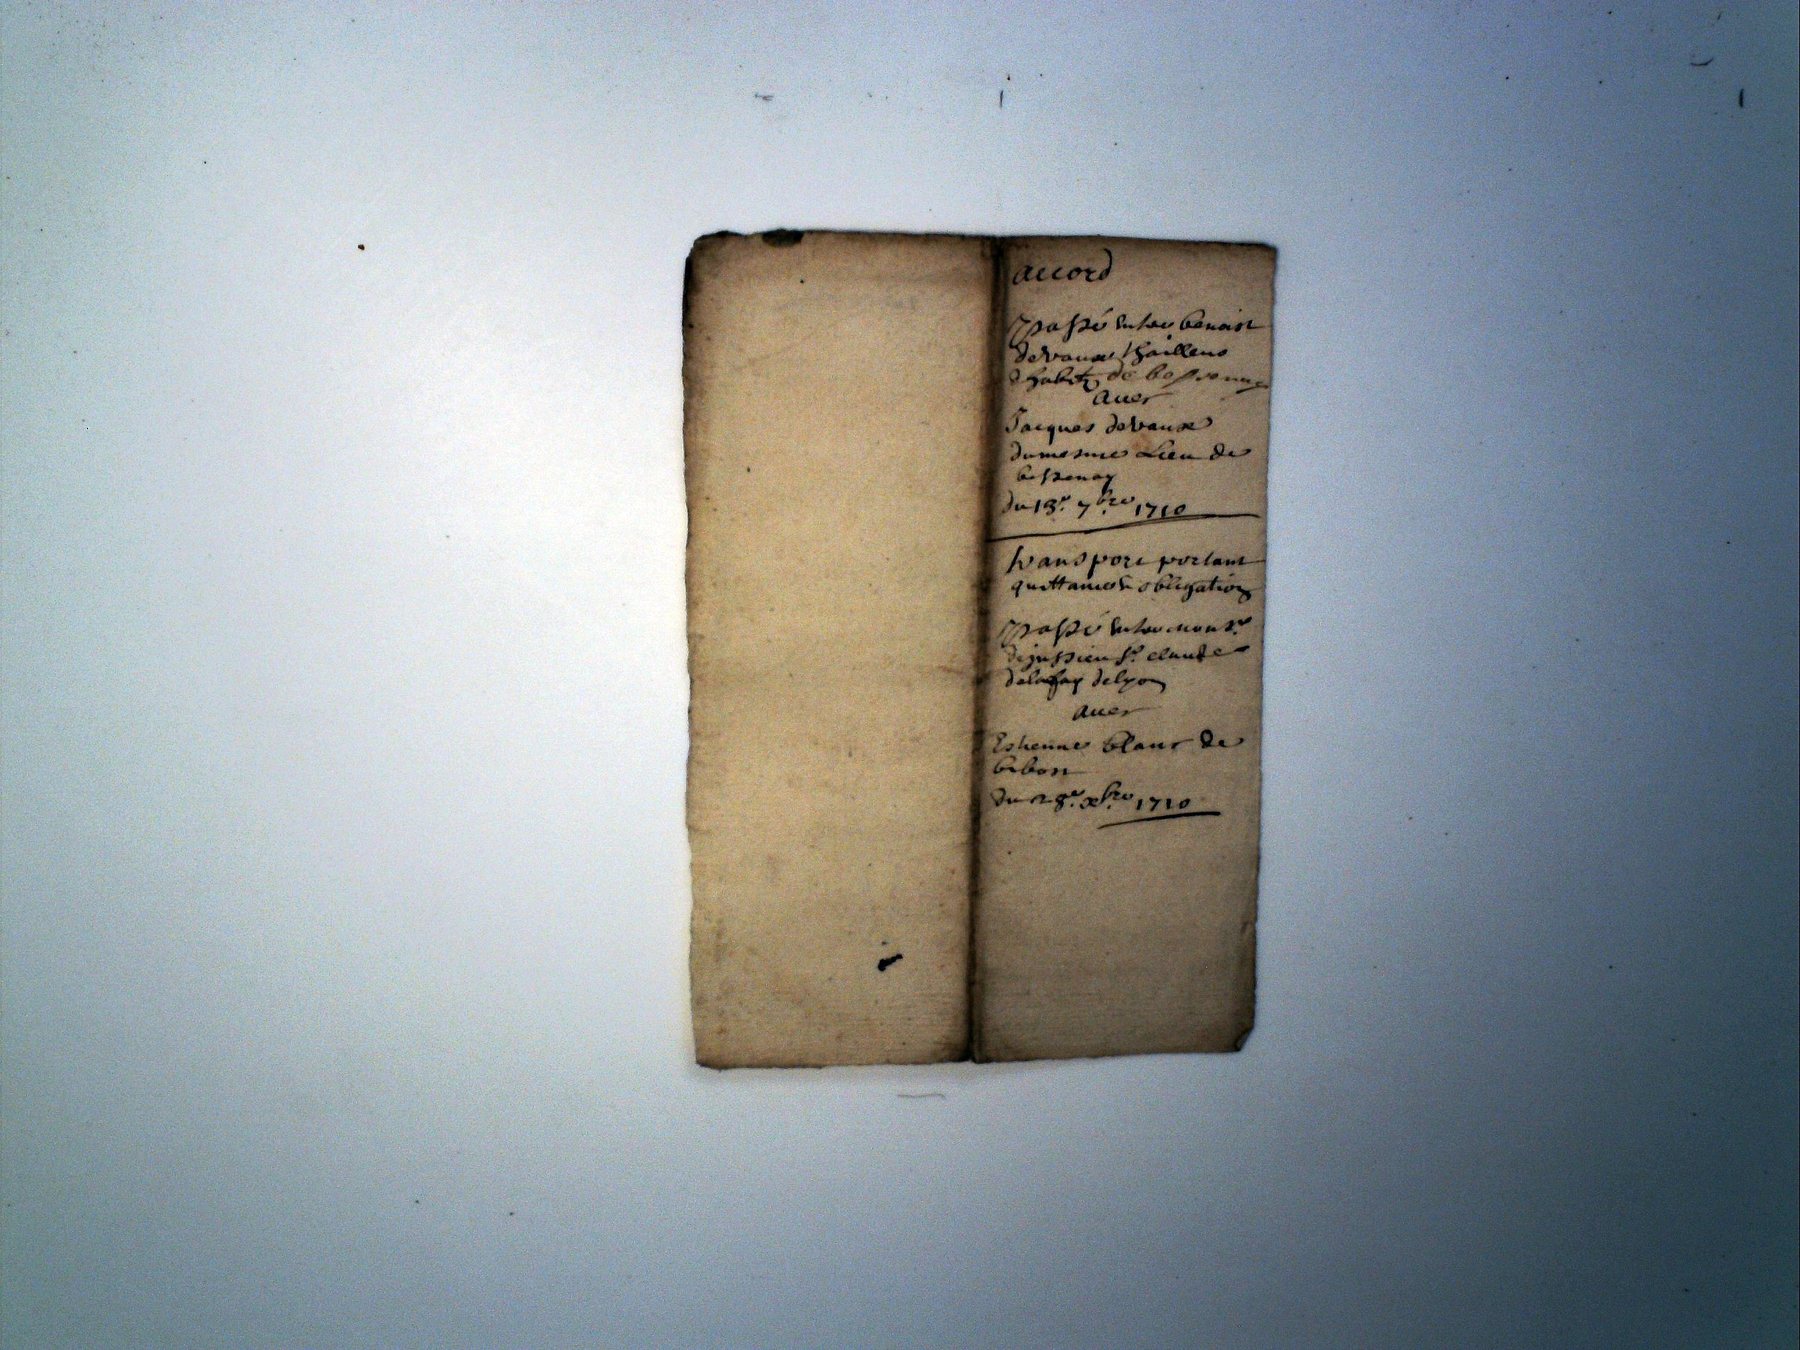 accord
passé entre benoist
devaux thailleur
d'habitz de bessenay
avec
Jacques devaux
du mesme Lieu de
bessenay
du 13e. 7bre 1710
transport portant
quittance & obligation
passé entre monsr.
dejussieu sr. claude
delafay delyon
avec
Estienne blanc de
bibost
du 28e. xbre 1710